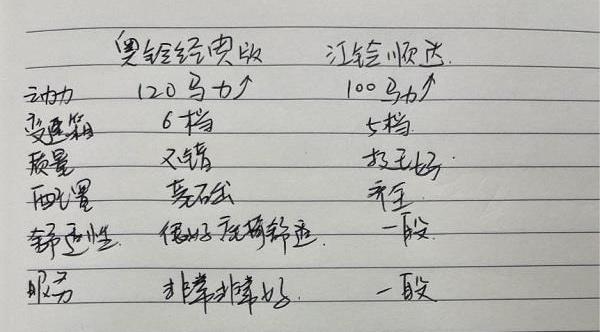 奥铃经典版 江铃顺达
动力 120马力↑ 100马力↑
变速箱 6档 5档
质量 不错 较好
配置 齐全
舒适性 很好 舒适 一般
服务 非常非常好 一般